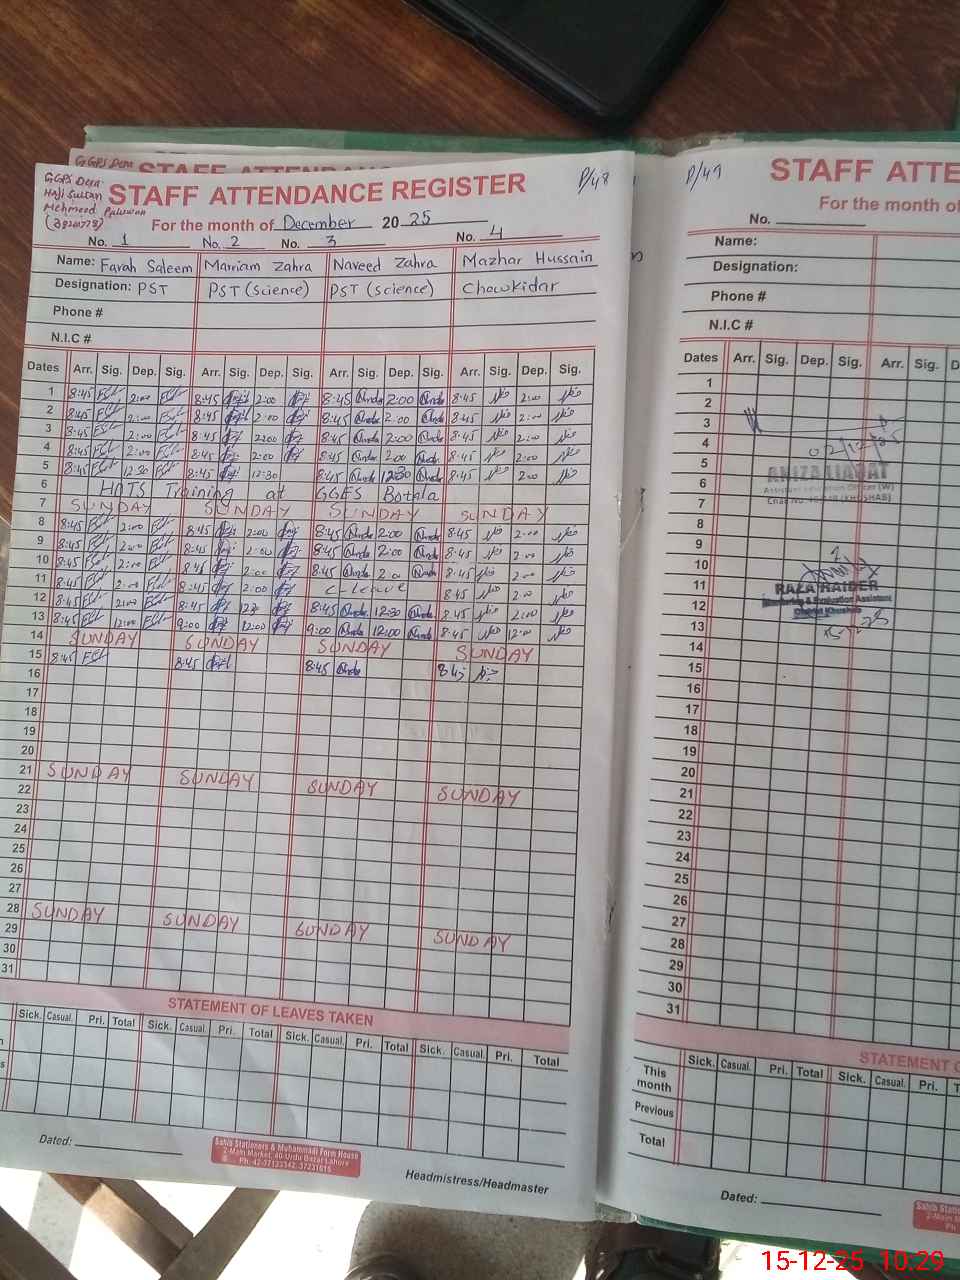 GGPS Dera
STAFF ATTENDAN
GGPS Dera
Haji Sultan
Mehmood Paluwan
(38210778)
STAFF ATTENDANCE REGISTER
P/48
For the month of December 2025
No. 1 No. 2 No. 3 No. 4
Name: Farah Saleem Marriam Zahra Naveed Zahra Mazhar Hussain
Designation: PST PST (science) PST (science) Chowkidar
Phone #
N.I.C #
Dates Arr. Sig. Dep. Sig. Arr. Sig. Dep. Sig. Arr. Sig. Dep. Sig. Arr. Sig. Dep. Sig.
1 8:45 2:00 8:45 2:00 8:45 2:00 8:45 2:00
2 8:45 2:00 8:45 2:00 8:45 2:00 8:45 2:00
3 8:45 2:00 8:45 2:00 8:45 2:00 8:45 2:00
4 8:45 2:00 8:45 2:00 8:45 2:00 8:45 2:00
5 8:45 12:30 8:45 12:30 8:45 12:30 8:45 2:00
6 HOTS Training at GGES Botala
7 SUNDAY SUNDAY SUNDAY SUNDAY
8 8:45 2:00 8:45 2:00 8:45 2:00 8:45 2:00
9 8:45 2:00 8:45 2:00 8:45 2:00 8:45 2:00
10 8:45 2:00 8:45 2:00 8:45 2:00 8:45 2:00
11 8:45 2:00 8:45 2:00 C-leave 8:45 2:00
12 8:45 8:45 8:45 12:30 8:45 2:00
13 8:45 12:00 9:00 12:00 9:00 12:00 8:45 12:00
14 SUNDAY SUNDAY SUNDAY SUNDAY
15 8:45 8:45 8:45 8:45
16
17
18
19
20
21 SUNDAY SUNDAY SUNDAY SUNDAY
22
23
24
25
26
27
28 SUNDAY SUNDAY SUNDAY SUNDAY
29
30
31
STATEMENT OF LEAVES TAKEN
Sick. Casual. Pri. Total Sick. Casual. Pri. Total Sick. Casual. Pri. Total Sick. Casual. Pri. Total
Dated:
Sahib Stationers & Muhammadi Form House
2-Main Market, 40-Urdu Bazar Lahore
Ph: 42-37123342, 37231615
Headmistress/Headmaster
P/49
STAFF ATTE
For the month of
No.
Name:
Designation:
Phone #
N.I.C #
Dates Arr. Sig. Dep. Sig. Arr. Sig. D
1
2
3
4
02/12/25
5
6
Assistant Education Officer (W)
7
8
9
10
11
RAZA HAIDER
12
Monitoring & Evaluation Assistant
District Khushab
13
14
15
16
17
18
19
20
21
22
23
24
25
26
27
28
29
30
31
STATEMENT O
Sick. Casual. Pri. Total Sick. Casual. Pri. T
This month
Previous
Total
Dated:
Sahib Statio
2-Main M
Ph
15-12-25 10:29